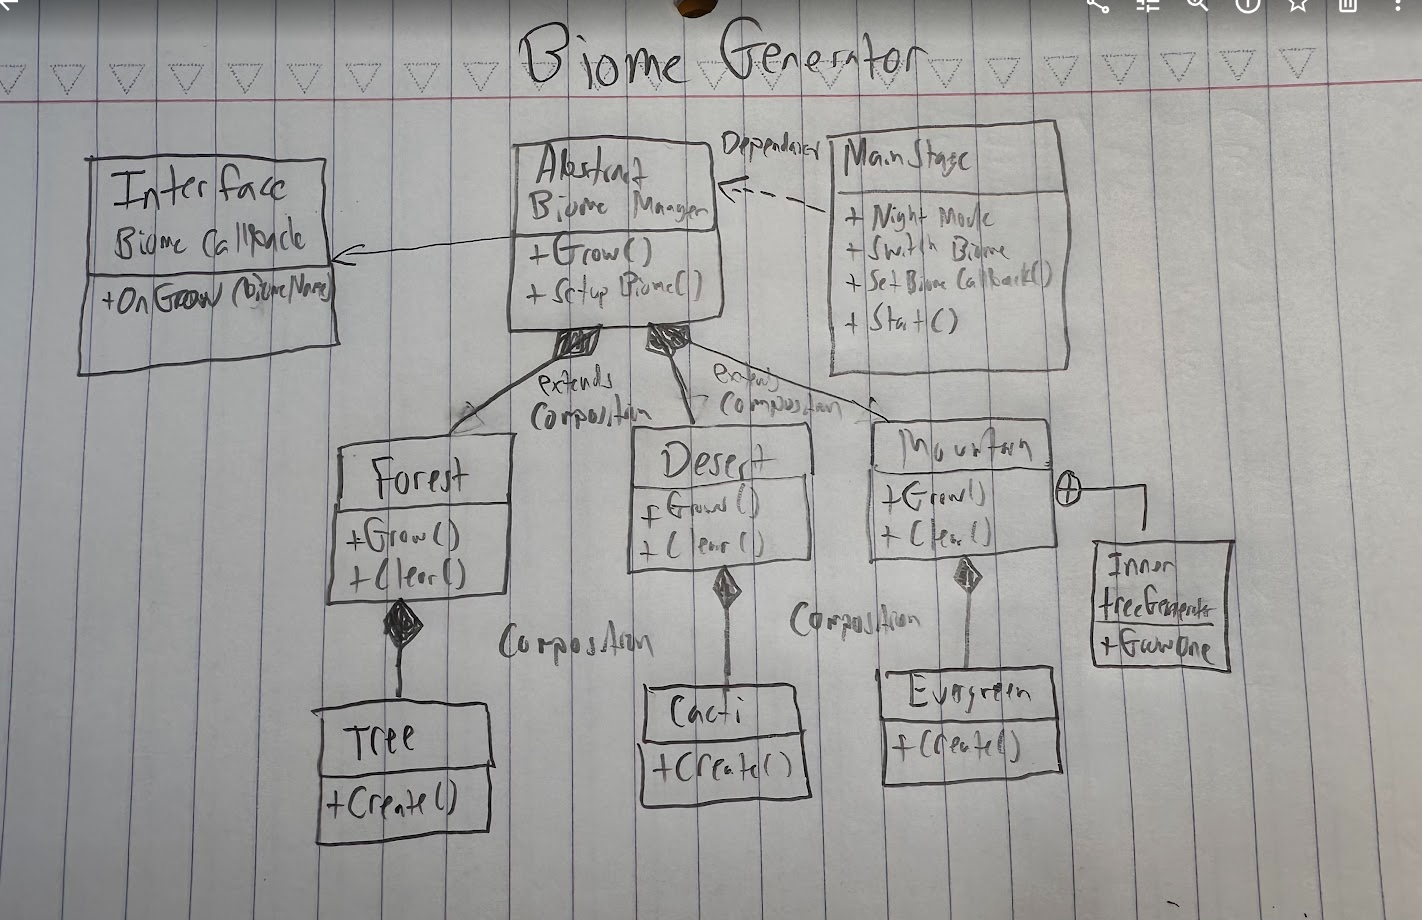 Biome Generator
Interface
Biome Callback
+OnGrow (biomeName)
Abstract
Biome Manager
+Grow()
+Setup Biome()
MainStage
+ Night Mode
+ Switch Biome
+ Set Biome Callback()
+ Start()
extends
Composition
extends
Composition
Forest
+Grow()
+Clear()
Desert
+Grow()
+Clear()
Mountain
+Grow()
+Clear()
Inner
treeGenerator
+GrowOne
Composition
Composition
Tree
+Create()
Cacti
+Create()
Evergreen
+Create()